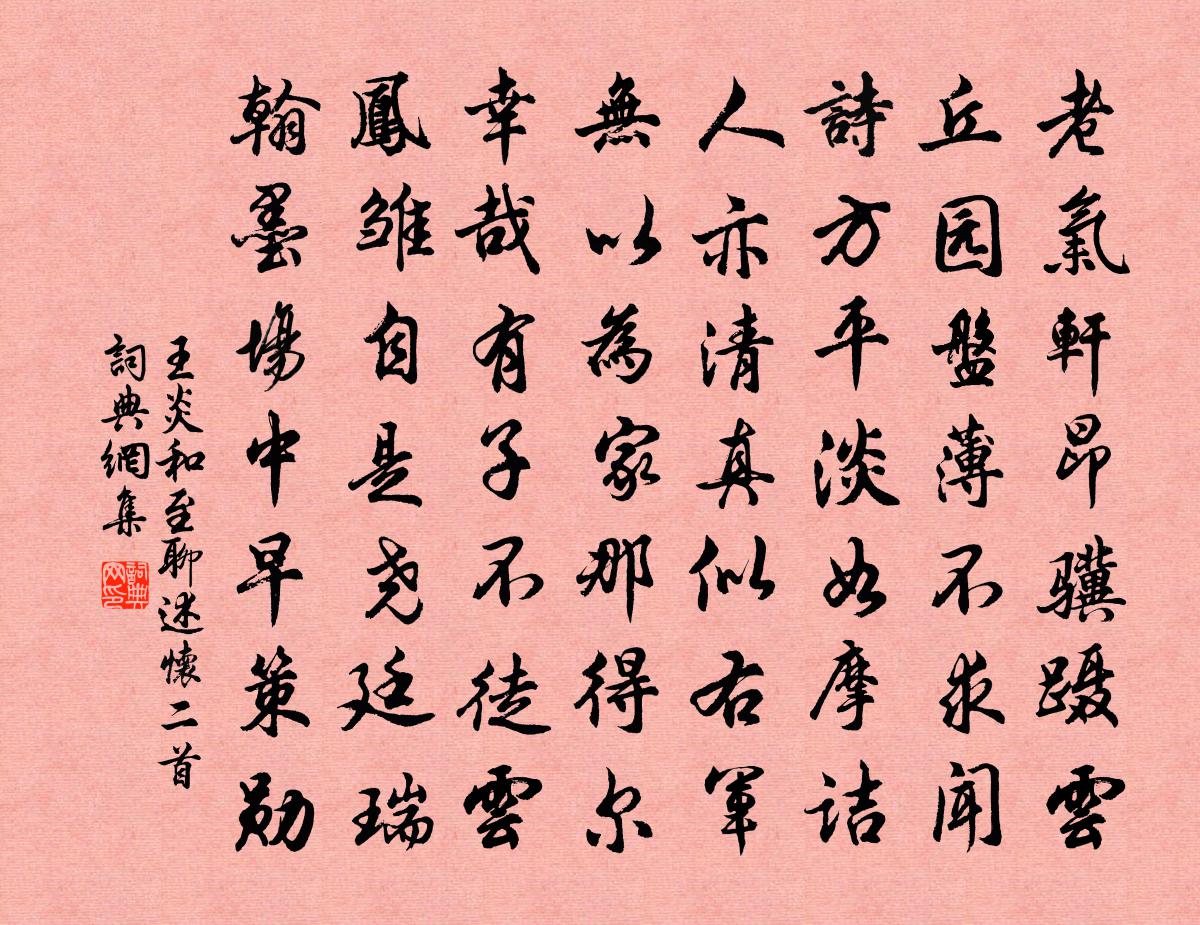 老氣軒昂骥蹑雲
丘园盤薄不求闻
詩方平淡如摩诘
人亦清真似右軍
無以為家那得尔
幸哉有子不徒雲
鳳雏自是尧廷瑞
翰墨場中早策勋
王炎和至聊述懷二首
詞典網集
詞典网印